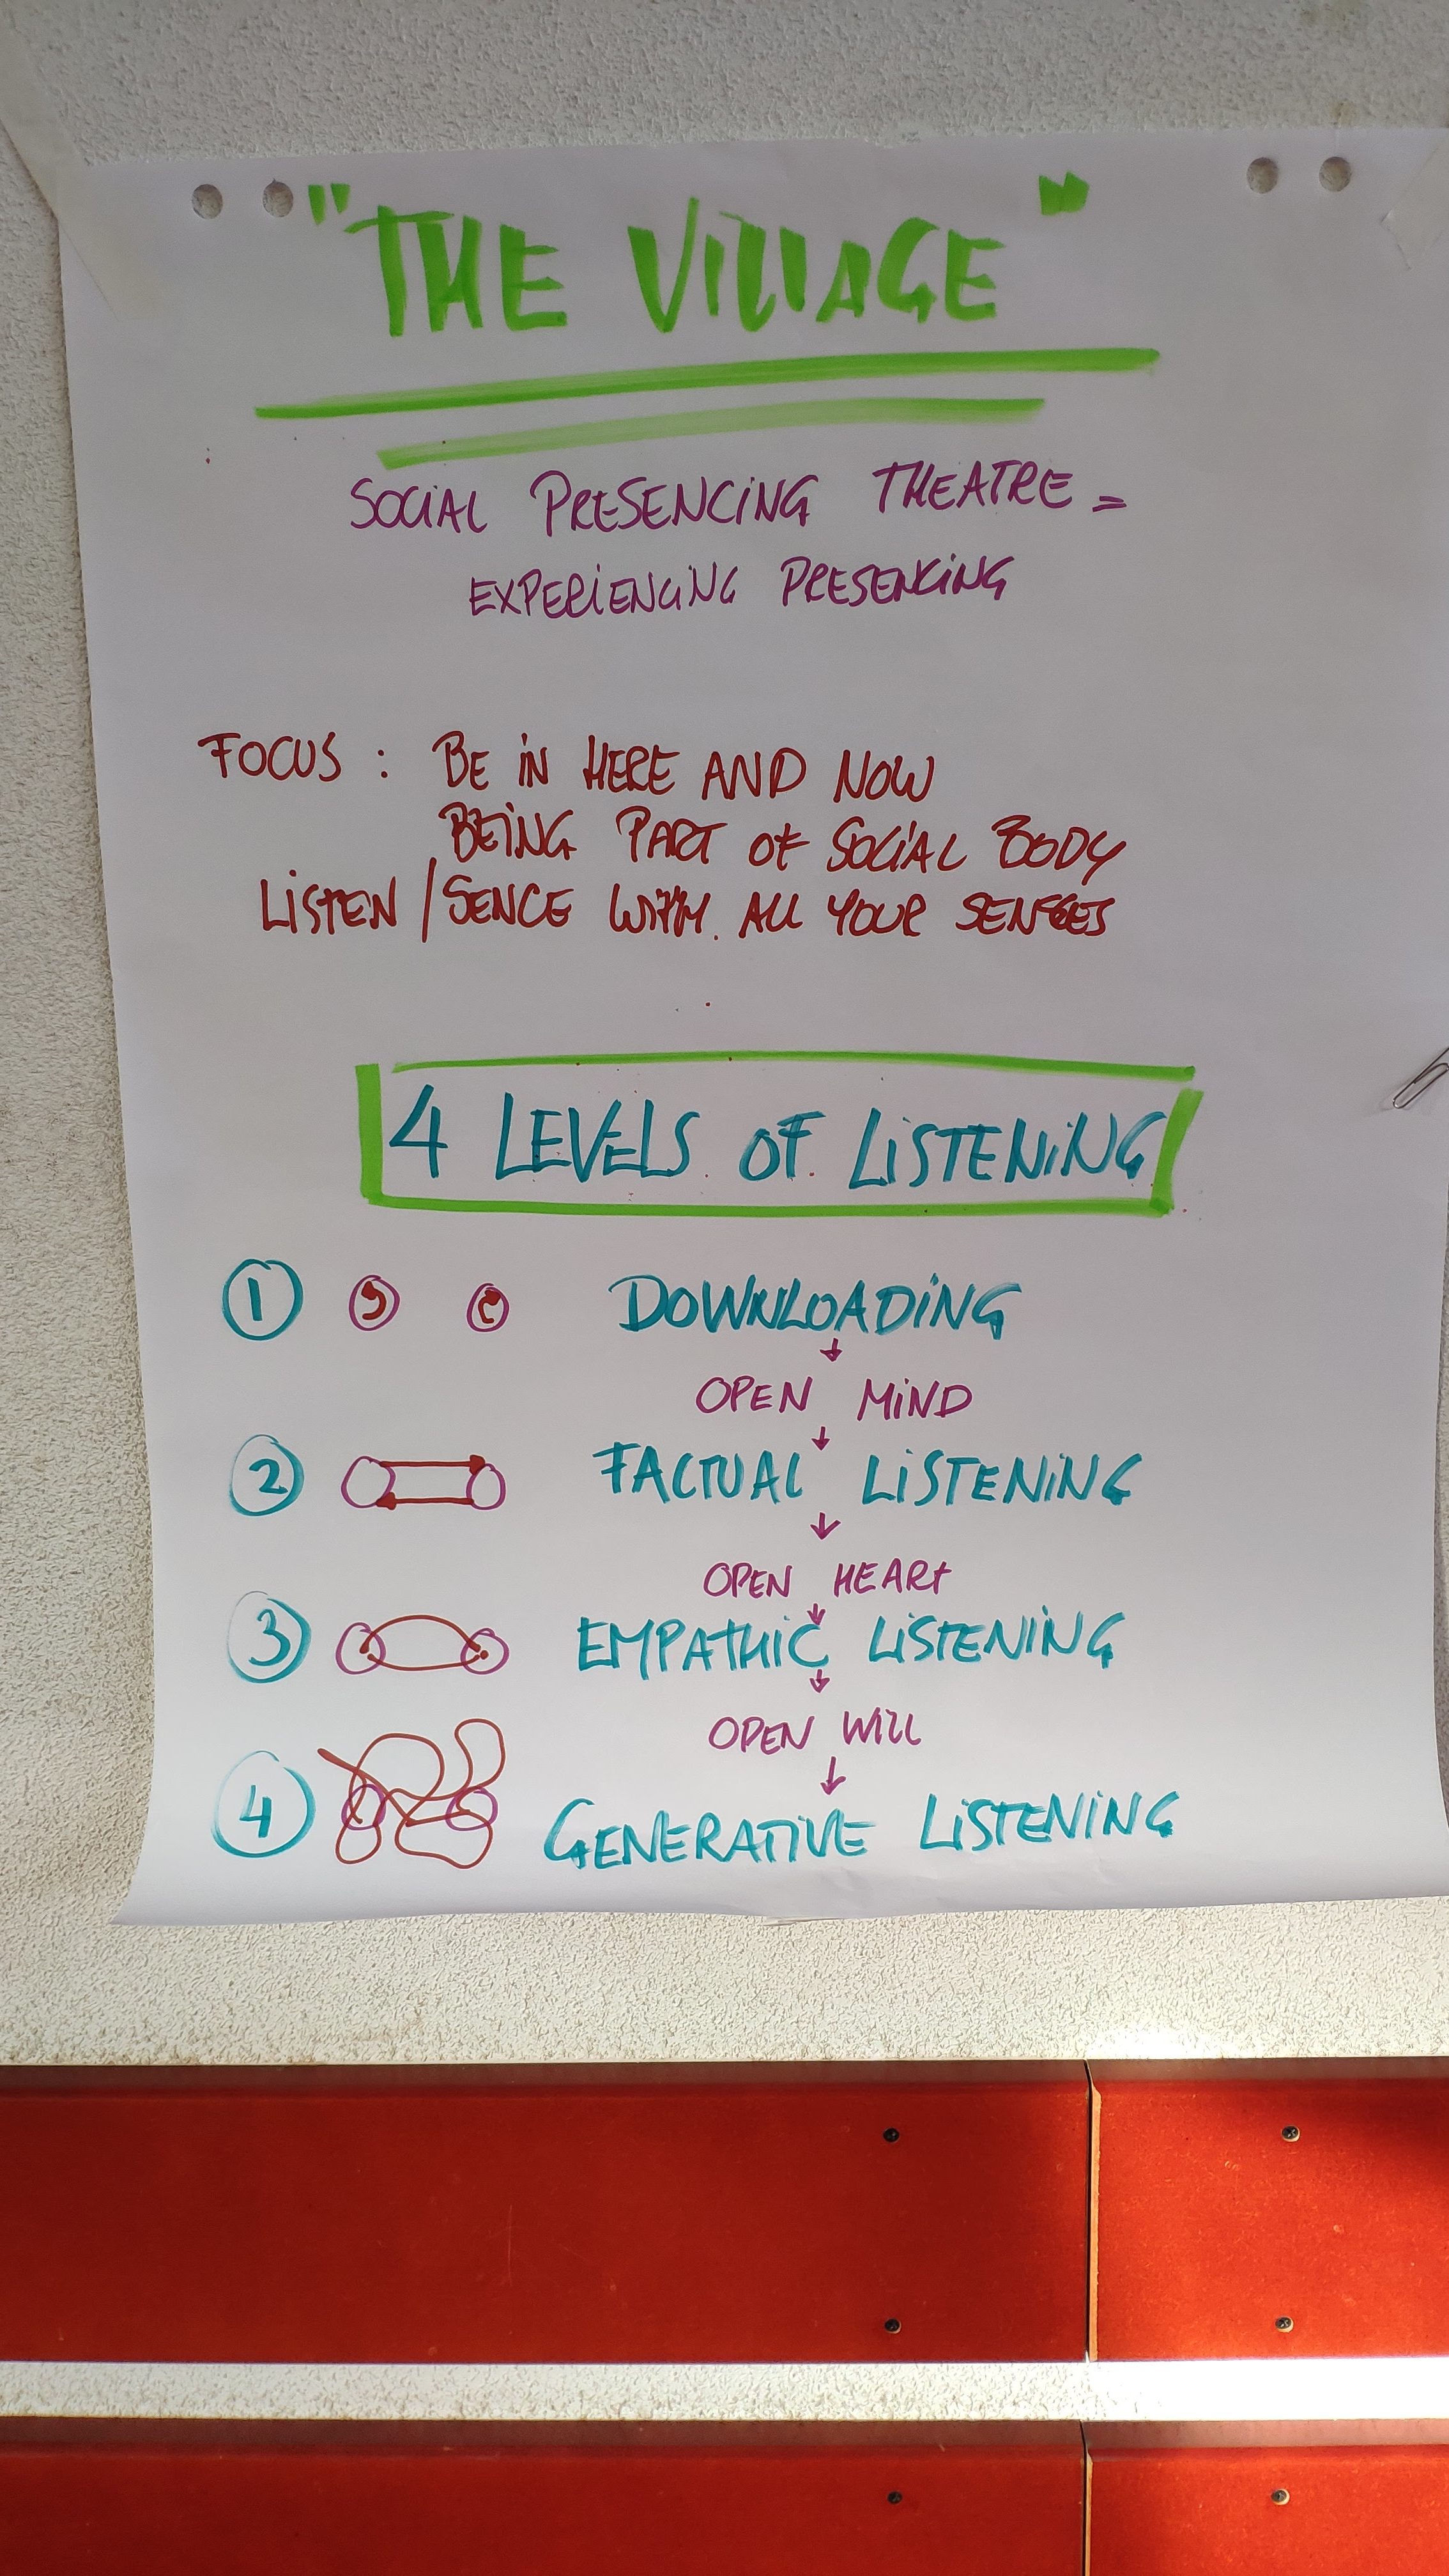 "THE VILLAGE"
SOCIAL PRESENCING THEATRE =
EXPERIENCING PRESENCING
FOCUS : BE IN HERE AND NOW
BEING PART OF SOCIAL BODY
LISTEN / SENCE WITH ALL YOUR SENSES
4 LEVELS OF LISTENING
1 DOWNLOADING
OPEN MIND
2 FACTUAL LISTENING
OPEN HEART
3 EMPATHIC LISTENING
OPEN WILL
4 GENERATIVE LISTENING